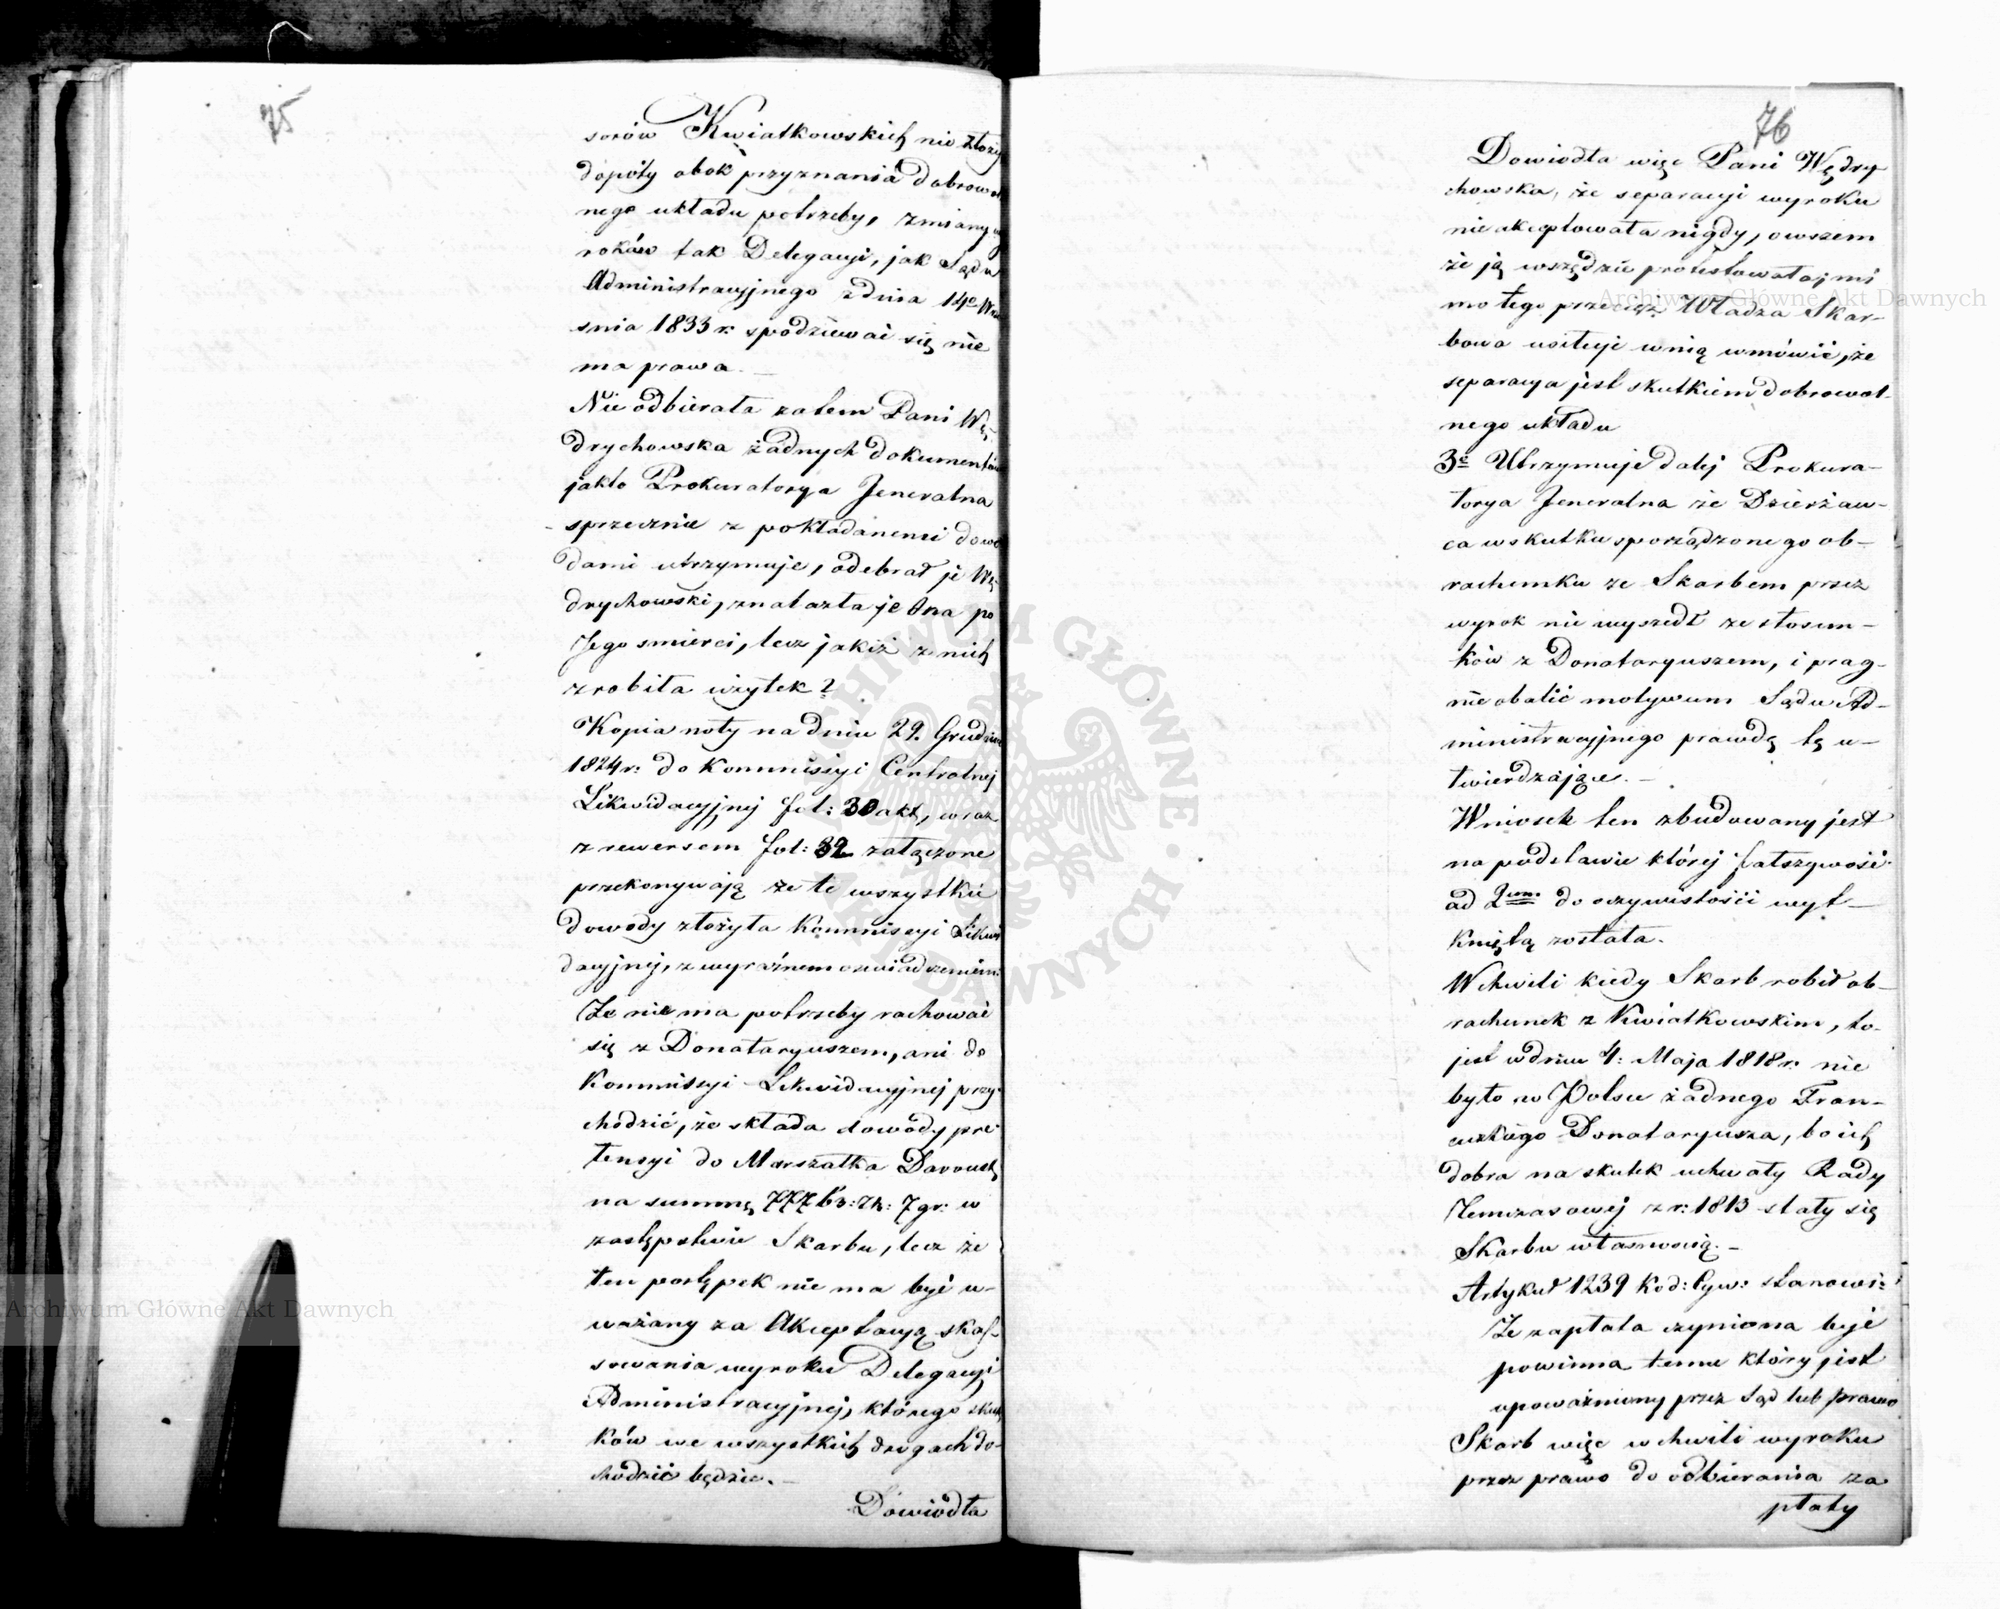 75
sorów Kwiatkowskich nie złoży
dopóty obok przyznania dobrowol
nego układu potrzeby, zmiany wy
roków tak Delegacyi, jak Sądu
Administracyjnego z dnia 14º Wrze
snia 1833 r. spodziewać się nie
ma prawa. —
Nie odbierała zatem Pani Wę-
drychowska żadnych dokumentów
jak to Prokuratorya Jeneralna
sprzecznie z pokładanemi dowo
dami utrzymuje, odebrał je Wę-
drychowski, znalazła je Ona po
Jego smierci, lecz jakiż z nich
zrobiła użytek?
Kopia noty na dniu 29. Grudnia
1824 r: do Kommissyi Centralnej
Likwidacyjnej fol: 30 akt, wraz
z rewersem fol: 32 załączone
przekonywają że te wszystkie
dowody złożyła Kommissyi Likwi
dacyjnej, z wyraźnem oswiadczeniem:
Że nie ma potrzeby rachować
się z Donataryuszem, ani do
Kommissyi Likwidacyjnej przy-
chodzić, że składa dowody pre
tensyi do Marszałka Davoust
na summę zł: 7 gr: w
zastępstwie Skarbu, lecz że
ten postępek nie ma być u-
ważany za Akceptacyą skas-
sowania wyroku Delegacyi
Administracyjnej, którego skut
ków we wszystkich drogach do-
chodzić będzie. —
Dowiodła
76
Dowiodła więc Pani Wędry
chowska, że separacyi wyroku
nie akceptowała nigdy, owszem
że ją wszędzie protestowała; mi
mo tego przecież Władza Skar-
bowa usiłuje w nią wmówić, że
separacya jest skutkiem dobrowol-
nego układu
3e Utrzymuje dalej Prokura-
torya Jeneralna że Dzierżaw-
ca w skutku sporządzonego ob-
rachunku ze Skarbem przez
wyrok nie wyszedł ze stosun-
ków z Donataryuszem, i prag-
nie obalić motywum Sądu Ad-
ministracyjnego prawdę tę u-
twierdzające. —
Wniosek ten zbudowany jest
na podstawie której fałszywość
ad 2um do oczywistości wyt-
kniętą została.
W chwili kiedy Skarb robił ob-
rachunek z Kwiatkowskim, to-
jest w dniu 4: Maja 1818 r. nie
było w Polsce żadnego Fran-
cuzkiego Donataryusza, bo ich
dobra na skutek uchwały Rady
Tymczasowej z r: 1813 stały się
Skarbu własnością. —
Artykuł 1239 Kod: Cyw: stanowi:
Że zapłata czyniona być
powinna temu który jest
upoważniony przez Sąd lub prawo
Skarb więc w chwili wyroku
przez prawo do odbierania za
płaty
Archiwum Główne Akt Dawnych
Archiwum Główne Akt Dawnych
ARCHIWUM GŁÓWNE AKT DAWNYCH